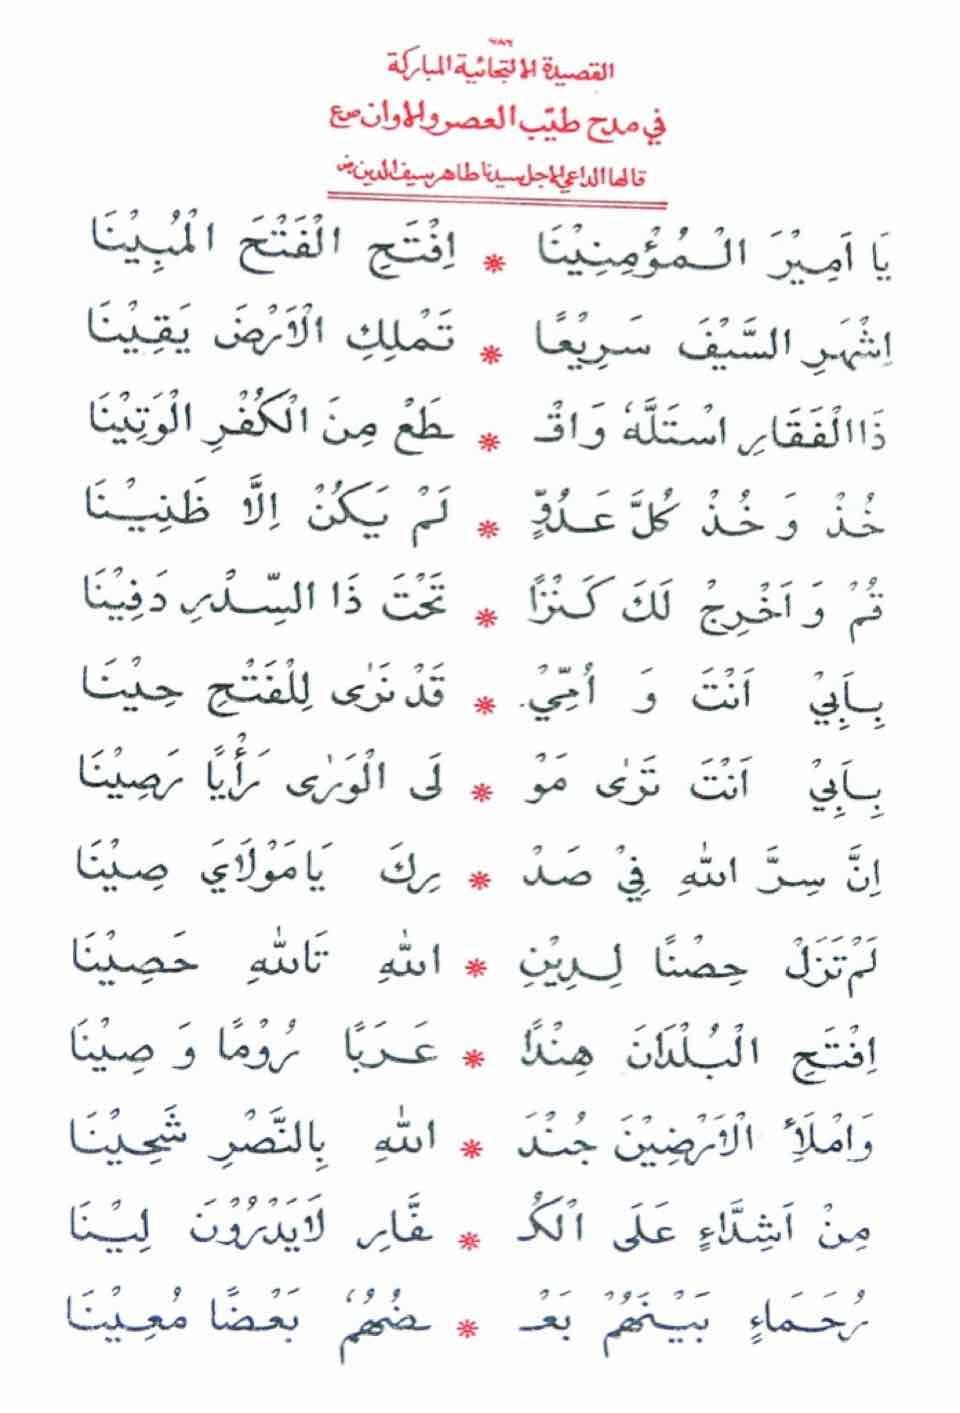 ٧٨٦
القصيدة الالتجائية المباركة
في مدح طيّب العصر والاوان صع
قالها الداعي الاجل سيدنا طاهر سيف الدين رض
يَا اَمِيْرَ الْمُؤْمِنِيْنَا * اِفْتَحِ الْفَتْحَ الْمُبِيْنَا
اِشْهَرِ السَّيْفَ سَرِيْعًا * تَمْلِكِ الْاَرْضَ يَقِيْنَا
ذَا الْفَقَارِ اسْتَلَّهٗ وَاقْـ * ـطَعْ مِنَ الْكُفْرِ الْوَتِيْنَا
خُذْ وَخُذْ كُلَّ عَدُوٍّ * لَمْ يَكُنْ اِلَّا ظَنِيْنَا
قُمْ وَاَخْرِجْ لَكَ كَنْزًا * تَحْتَ ذَا السِّدْرِ دَفِيْنَا
بِاَبِيْ اَنْتَ وَ اُمِّيْ * قَدْ نَرٰى لِلْفَتْحِ حِيْنَا
بِاَبِيْ اَنْتَ تَرٰى مَوْ * لَى الْوَرٰى رَأْيًا رَصِيْنَا
اِنَّ سِرَّ اللهِ فِيْ صَدْ * رِكَ يَا مَوْلَايَ صِيْنَا
لَمْ تَزَلْ حِصْنًا لِدِيْنِ * اللهِ تَاللهِ حَصِيْنَا
اِفْتَحِ الْبُلْدَانَ هِنْدًا * عَرَبًا رُوْمًا وَ صِيْنَا
وَامْلَأِ الْاَرْضِيْنَ جُنْدَ * اللهِ بِالنَّصْرِ شَحِيْنَا
مِنْ اَشِدَّاءٍ عَلَى الْكُـ * ـفَّارِ لَايَدْرُوْنَ لِيْنَا
رُحَمَاءٍ بَيْنَهُمْ بَعْـ * ـضُهُمْ بَعْضًا مُعِيْنَا